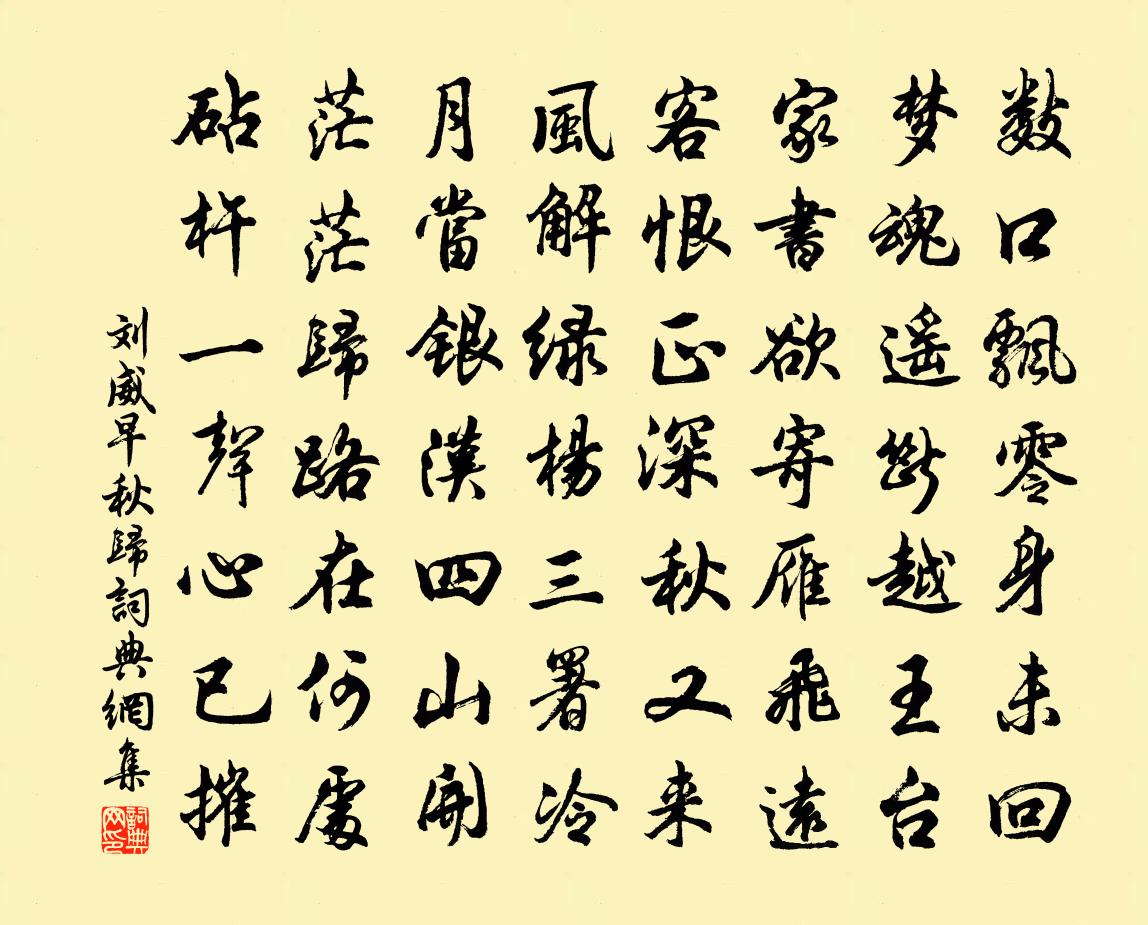 数口飄零身未回
梦魂遥断越王台
家書欲寄雁飛遠
客恨正深秋又来
風解绿楊三署冷
月當銀漢四山開
茫茫歸路在何處
砧杵一聲心已摧
刘威早秋歸詞典網集
詞典
网印